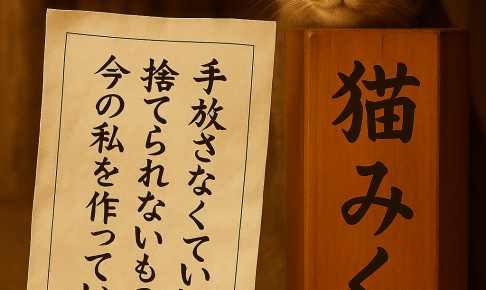 手放さなくてい
捨てられないも
今の私を作ってい
猫みく